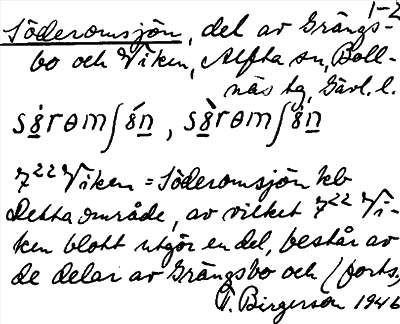 1-2
Söderomsjön, del av Grängs-
bo och Viken, Alfta sn, Boll-
näs tg, Gävl. l.
7²² Viken = Söderomsjön kb
Detta område, av vilket 7²² Vi-
ken blott utgör en del, består av
de delar av Grängsbo och (forts.)
T. Birgerson 1946